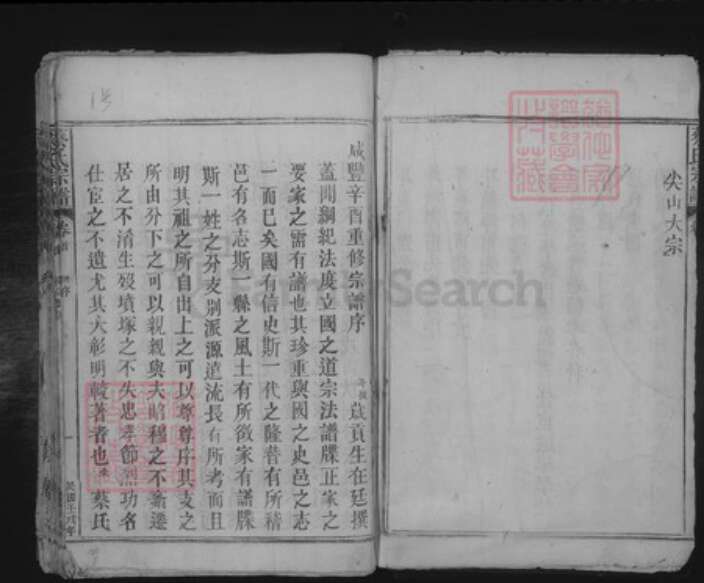 尖山大宗
咸豐辛酉重修宗譜序
歲貢生在廷撰
蓋聞綱紀法度立國之道宗法譜牒正家之
要家之需有譜也其珍重與國之史邑之志
一而已矣國有信史斯一代之隆替有所稽
邑有各志斯一縣之風土有所徵家有譜牒
斯一姓之分支別派源遠流長有所考而且
明其祖之所自出上之可以尊尊序其支之
所由分下之可以親親與夫昭穆之不紊遷
居之不淆生歿墳塚之不失忠孝節烈功名
仕宦之不遺尤其大彰明較著者也 蔡氏
蔡氏宗譜
FamilySearch